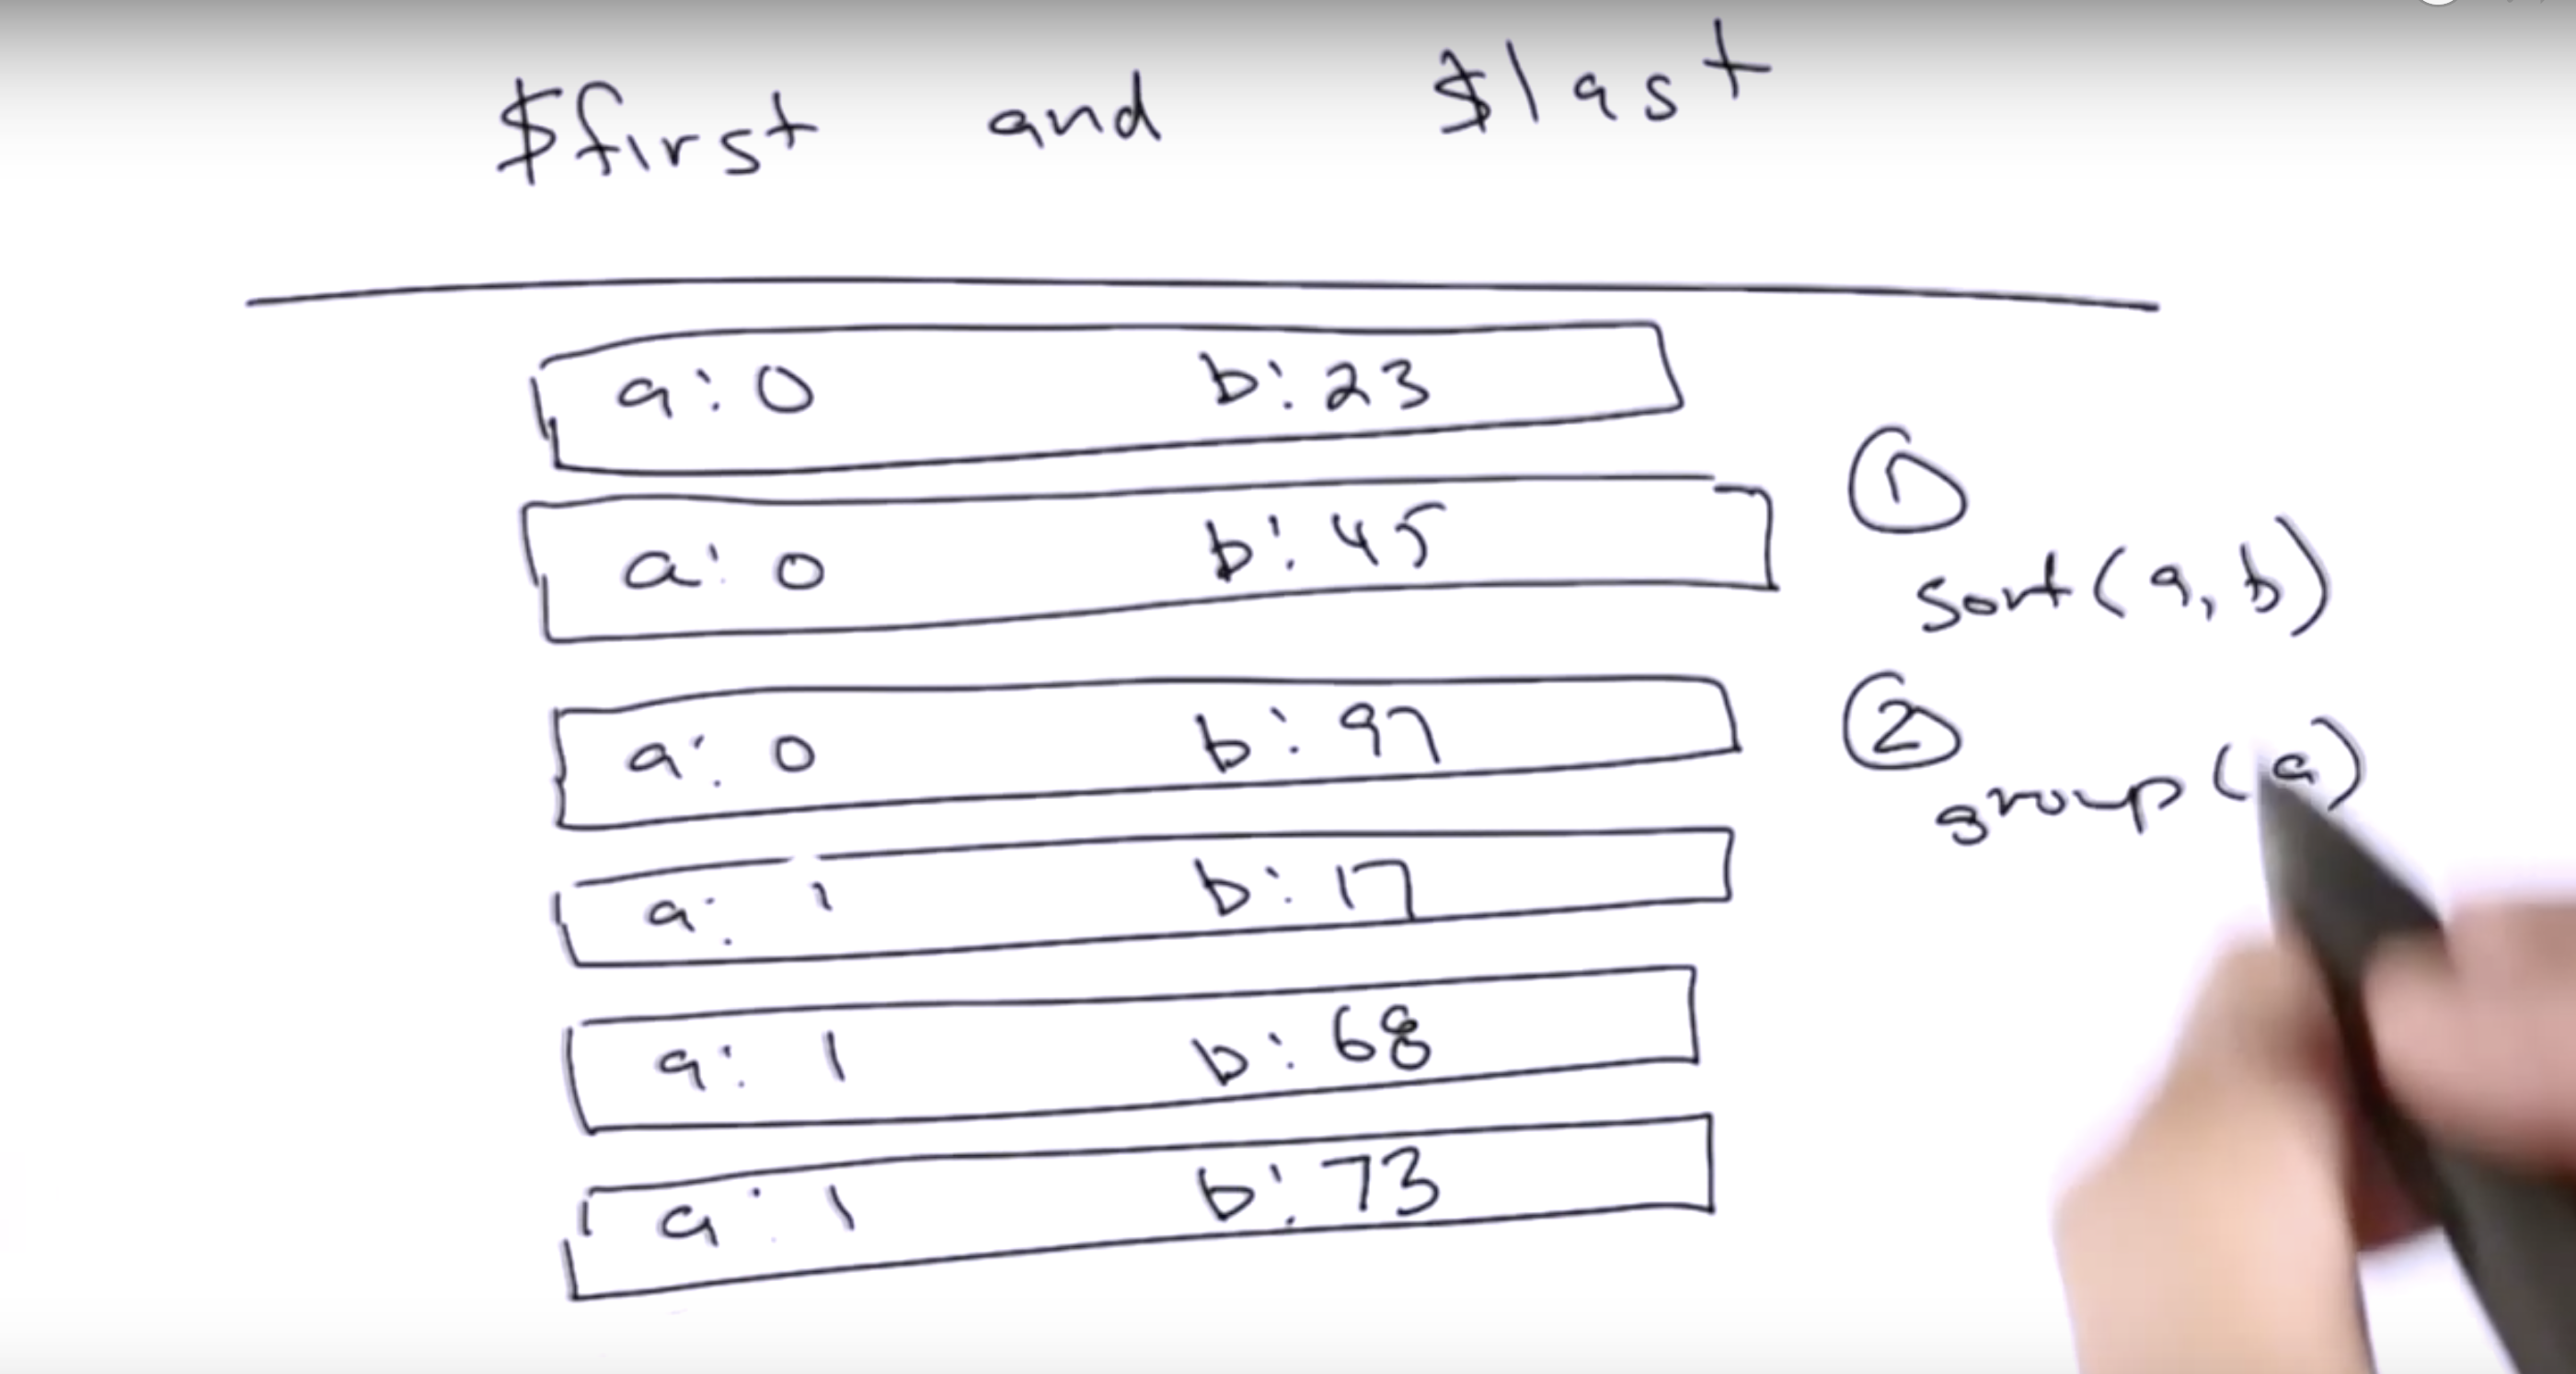 $first and $last
a: 0 b: 23
a: 0 b: 45
a: 0 b: 97
a: 1 b: 17
a: 1 b: 68
a: 1 b: 73
1
sort(a, b)
2
group(a)